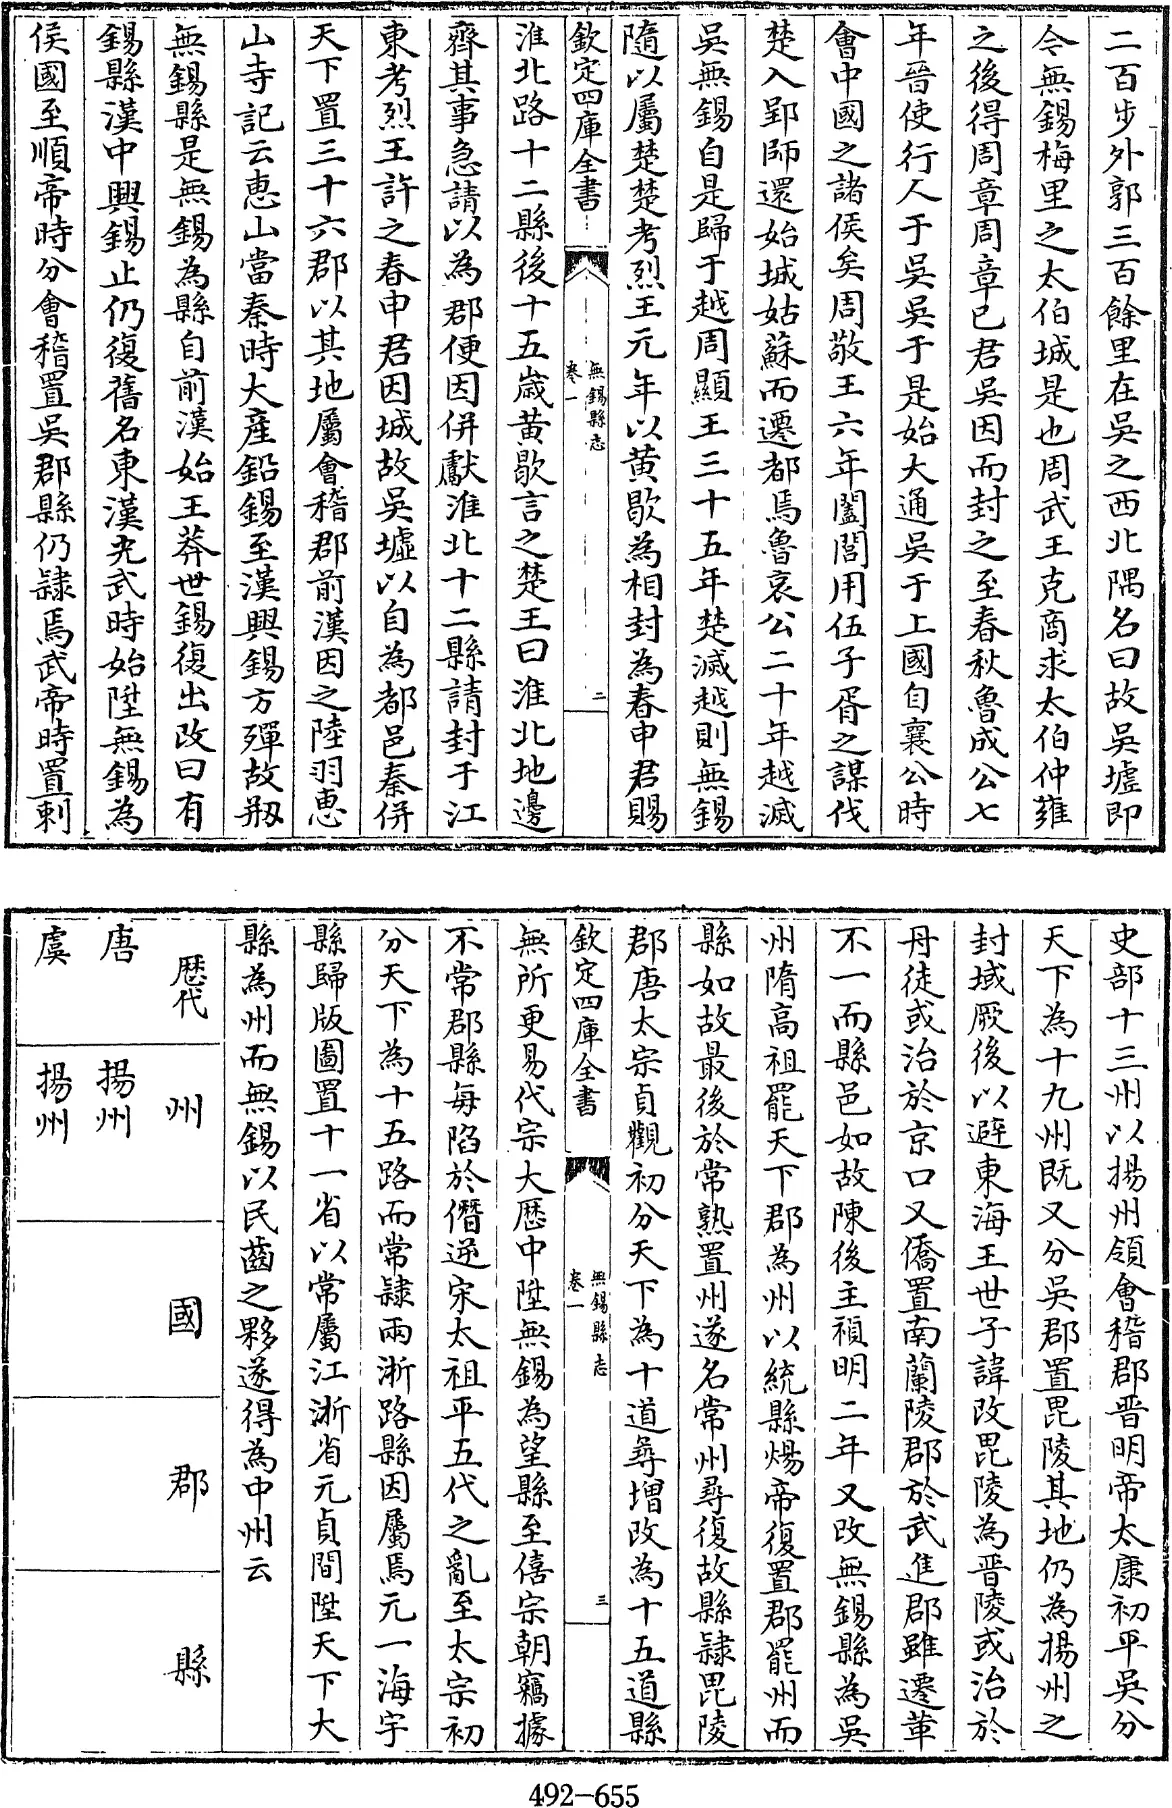 二百步外郭三百餘里在吳之西北隅名曰故吳墟即
今無錫梅里之太伯城是也周武王克商求太伯仲雍
之後得周章周章已君吳因而封之至春秋魯成公七
年晉使行人于吳吳于是始大通吳于上國自襄公時
會中國之諸侯矣周敬王六年闔閭用伍子胥之謀伐
楚入郢師還始城姑蘇而遷都焉魯哀公二十年越滅
吳無錫自是歸于越周顯王三十五年楚滅越則無錫
隨以屬楚楚考烈王元年以黄歇為相封為春申君賜
欽定四庫全書
無錫縣志
卷一
二
淮北路十二縣後十五歲黄歇言之楚王曰淮北地邊
齊其事急請以為郡便因併獻淮北十二縣請封于江
東考烈王許之春申君因城故吳墟以自為都邑秦併
天下置三十六郡以其地屬會稽郡前漢因之陸羽恵
山寺記云恵山當秦時大產鉛錫至漢興錫方殫故剏
無錫縣是無錫為縣自前漢始王莽世錫復出改曰有
錫縣漢中興錫止仍復舊名東漢光武時始陞無錫為
侯國至順帝時分會稽置吳郡縣仍隸焉武帝時置刺
史部十三州以揚州領會稽郡晉明帝太康初平吳分
天下為十九州既又分吳郡置毘陵其地仍為揚州之
封域厥後以避東海王世子諱改毘陵為晉陵或治於
丹徒或治於京口又僑置南蘭陵郡於武進郡雖遷革
不一而縣邑如故陳後主禎明二年又改無錫縣為吳
州隋高祖罷天下郡為州以統縣煬帝復置郡罷州而
縣如故最後於常熟置州遂名常州尋復故縣隸毘陵
郡唐太宗貞觀初分天下為十道尋增改為十五道縣
欽定四庫全書
無錫縣志
卷一
三
無所更易代宗大歴中陞無錫為望縣至僖宗朝竊據
不常郡縣每陷於僭逆宋太祖平五代之亂至太宗初
分天下為十五路而常隸兩浙路縣因屬焉元一海宇
縣歸版圖置十一省以常屬江浙省元貞間陞天下大
縣為州而無錫以民齒之夥遂得為中州云
歴代 州 國 郡 縣
唐 揚州
虞 揚州
492-655